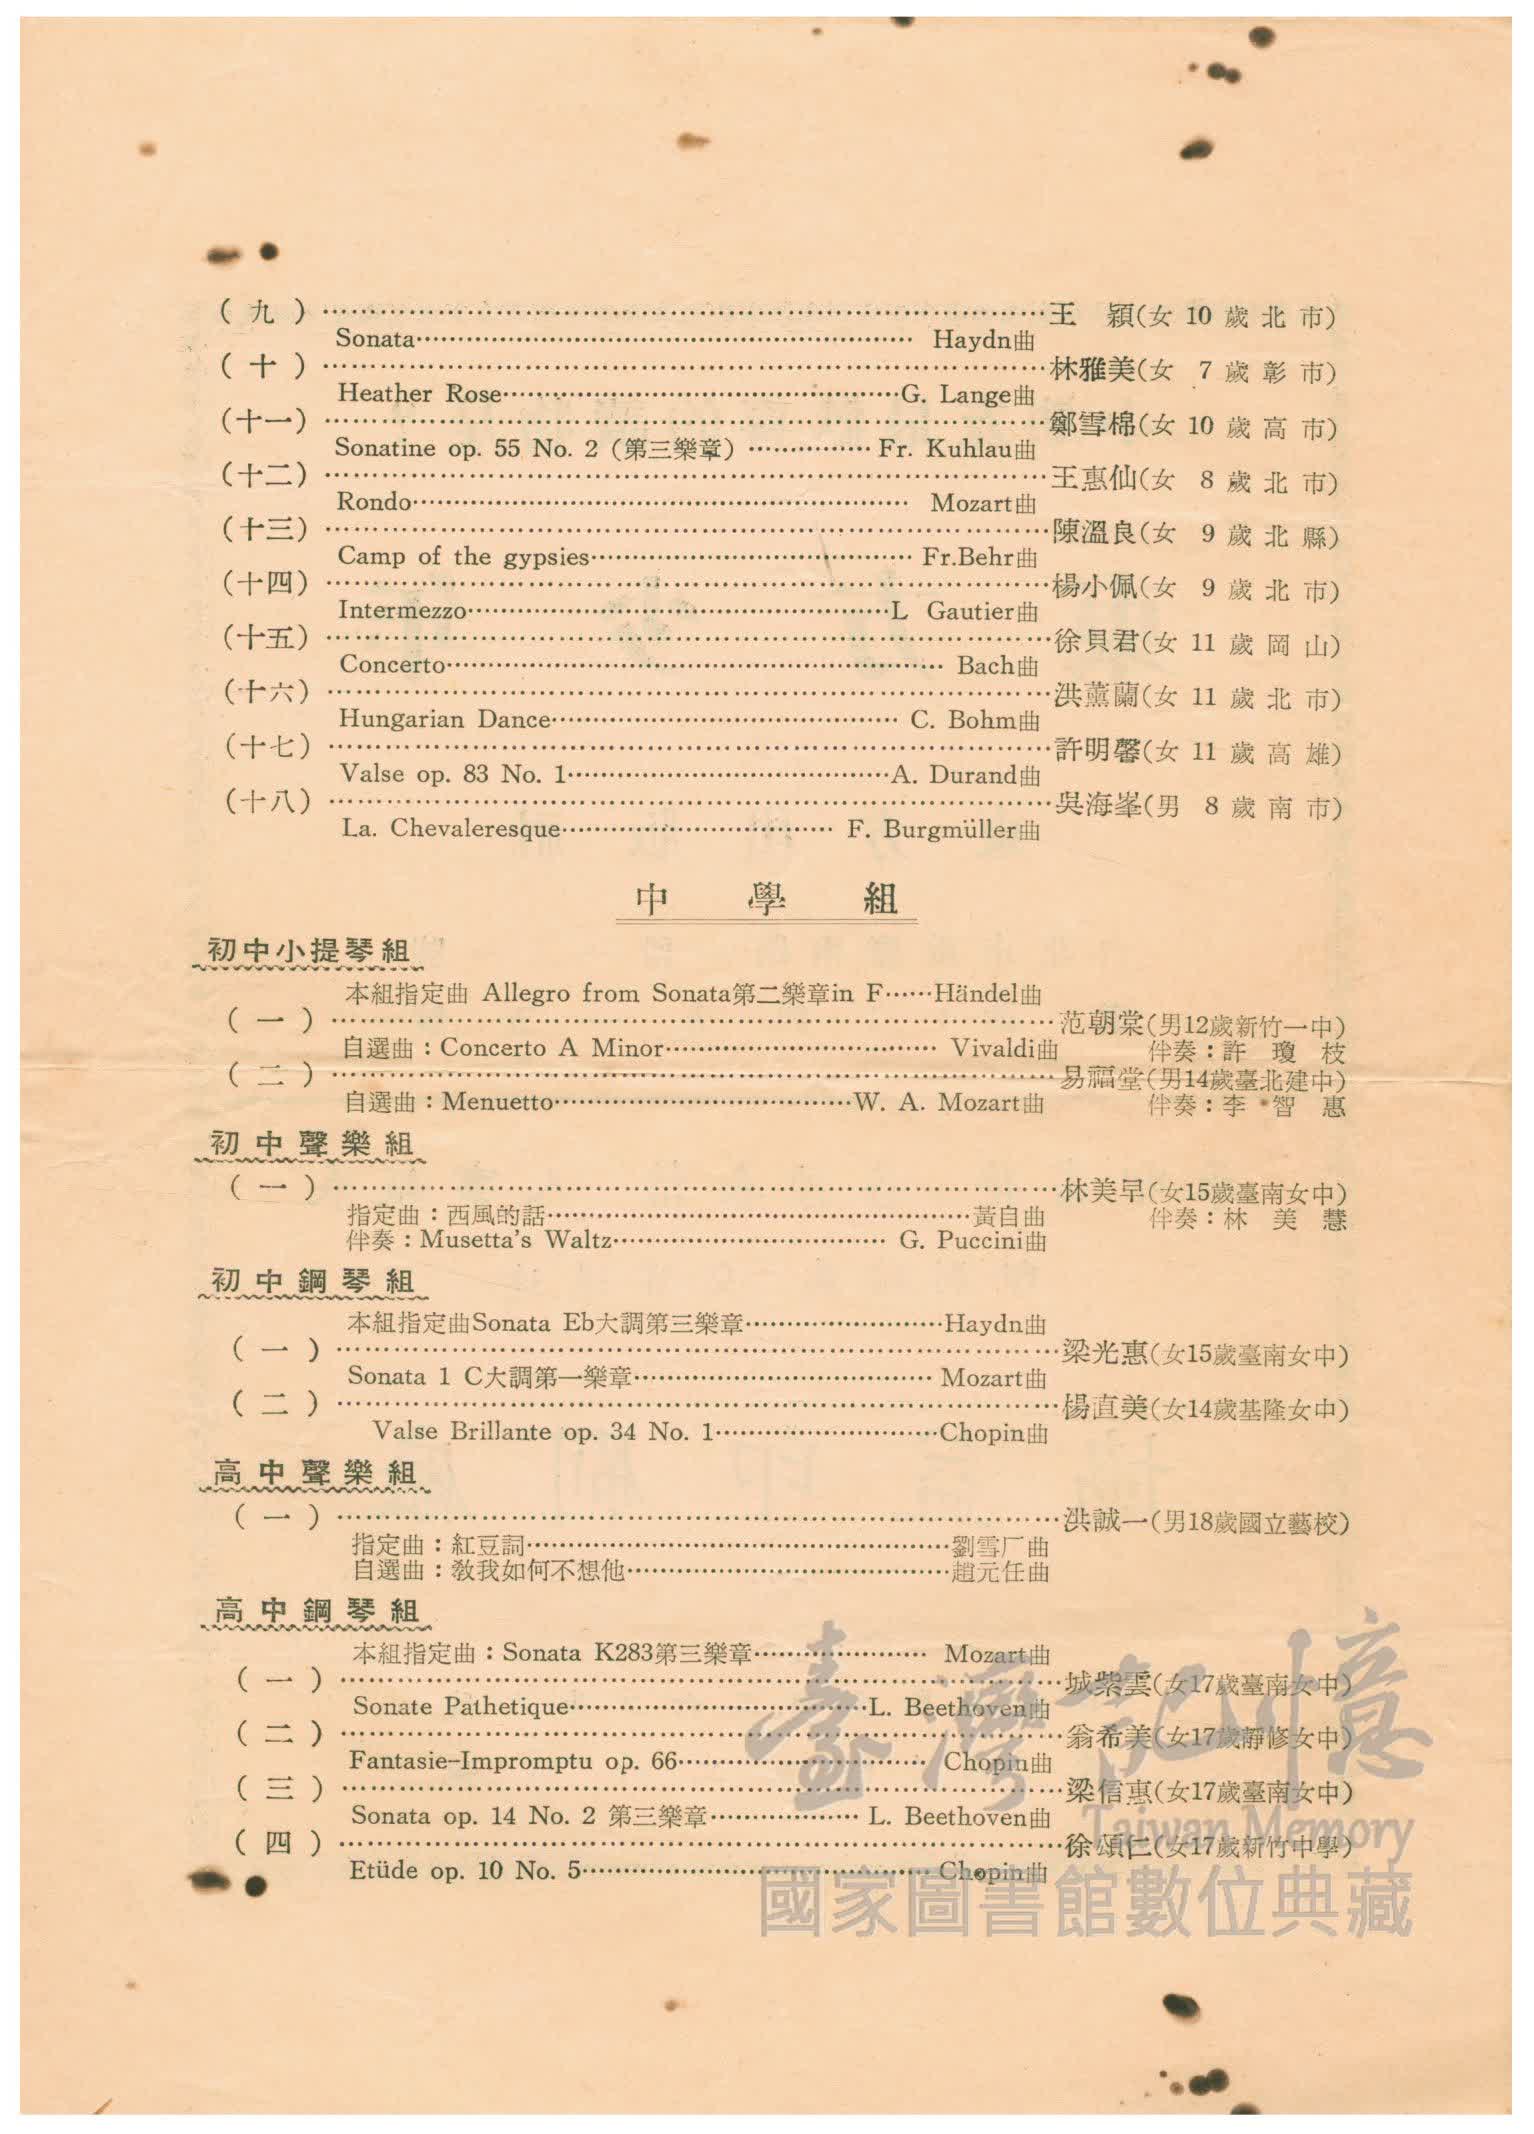 (九)……王　穎(女 10 歲北市)
Sonata……Haydn曲
(十)……林雅美(女 7 歲彰市)
Heather Rose……G. Lange曲
(十一)……鄭雪棉(女 10 歲高市)
Sonatine op. 55 No. 2 (第三樂章)……Fr. Kuhlau曲
(十二)……王惠仙(女 8 歲北市)
Rondo……Mozart曲
(十三)……陳溫良(女 9 歲北縣)
Camp of the gypsies……Fr.Behr曲
(十四)……楊小佩(女 9 歲北市)
Intermezzo……L Gautier曲
(十五)……徐貝君(女 11 歲岡山)
Concerto……Bach曲
(十六)……洪薰蘭(女 11 歲北市)
Hungarian Dance……C. Bohm曲
(十七)……許明馨(女 11 歲高雄)
Valse op. 83 No. 1……A. Durand曲
(十八)……吳海峯(男 8 歲南市)
La. Chevaleresque……F. Burgmüller曲
中學組
初中小提琴組
本組指定曲 Allegro from Sonata第二樂章in F……Händel曲
(一)……范朝棠(男12歲新竹一中)
自選曲：Concerto A Minor……Vivaldi曲　伴奏：許瓊枝
(二)……易福堂(男14歲臺北建中)
自選曲：Menuetto……W. A. Mozart曲　伴奏：李智惠
初中聲樂組
(一)……林美早(女15歲臺南女中)
指定曲：西風的話……黃自曲　伴奏：林美慧
伴奏：Musetta's Waltz……G. Puccini曲
初中鋼琴組
本組指定曲Sonata Eb大調第三樂章……Haydn曲
(一)……梁光惠(女15歲臺南女中)
Sonata 1 C大調第一樂章……Mozart曲
(二)……楊直美(女14歲基隆女中)
Valse Brillante op. 34 No. 1……Chopin曲
高中聲樂組
(一)……洪誠一(男18歲國立藝校)
指定曲：紅豆詞……劉雪厂曲
自選曲：敎我如何不想他……趙元任曲
高中鋼琴組
本組指定曲：Sonata K283第三樂章……Mozart曲
(一)……城紫雲(女17歲臺南女中)
Sonate Pathetique……L. Beethoven曲
(二)……翁希美(女17歲靜修女中)
Fantasie-Impromptu op. 66……Chopin曲
(三)……梁信惠(女17歲臺南女中)
Sonata op. 14 No. 2 第三樂章……L. Beethoven曲
(四)……徐頌仁(女17歲新竹中學)
Etüde op. 10 No. 5……Chopin曲
臺灣記憶
Taiwan Memory
國家圖書館數位典藏